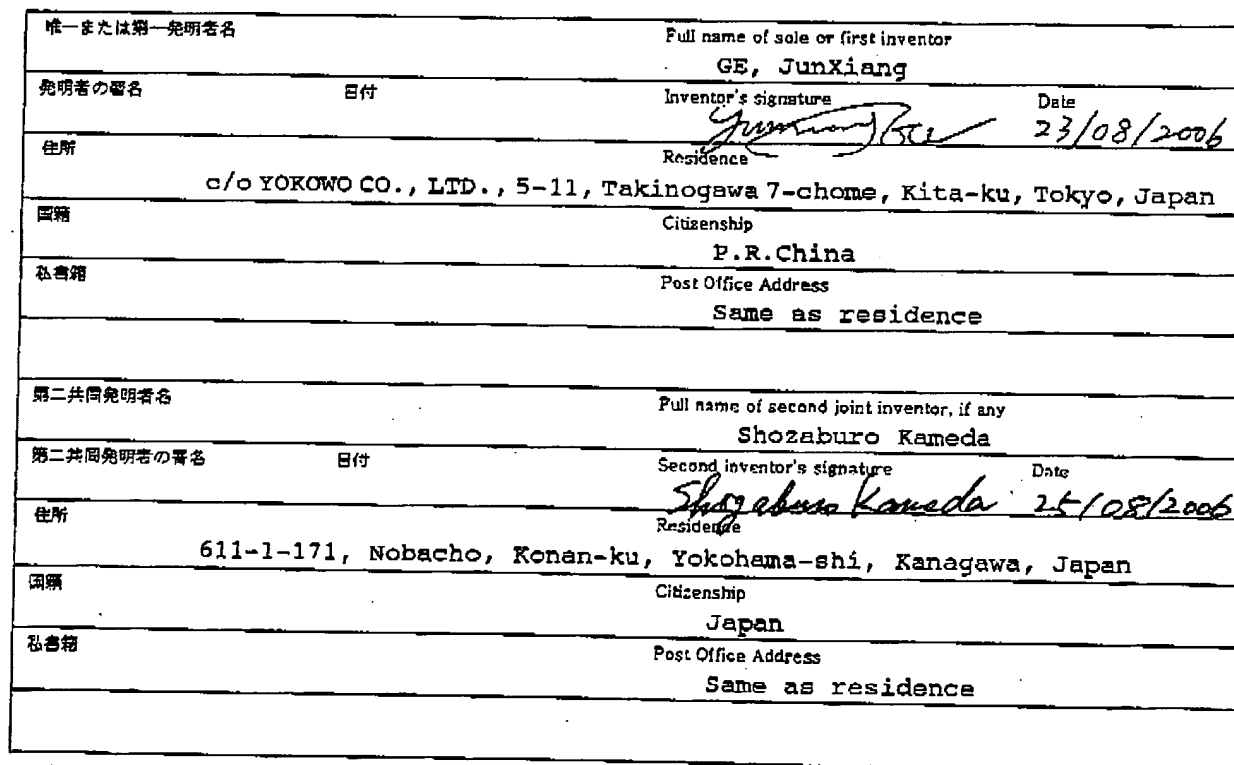 唯一または第一発明者名 Full name of sole or first inventor
GE, JunXiang
発明者の署名 日付 Inventor's signature Date
23/08/2006
住所 Residence
c/o YOKOWO CO., LTD., 5-11, Takinogawa 7-chome, Kita-ku, Tokyo, Japan
国籍 Citizenship
P.R.China
私書箱 Post Office Address
Same as residence
第二共同発明者名 Full name of second joint inventor, if any
Shozaburo Kameda
第二共同発明者の署名 日付 Second inventor's signature Date
Shozaburo Kameda 25/08/2006
住所 Residence
611-1-171, Nobacho, Konan-ku, Yokohama-shi, Kanagawa, Japan
国籍 Citizenship
Japan
私書箱 Post Office Address
Same as residence